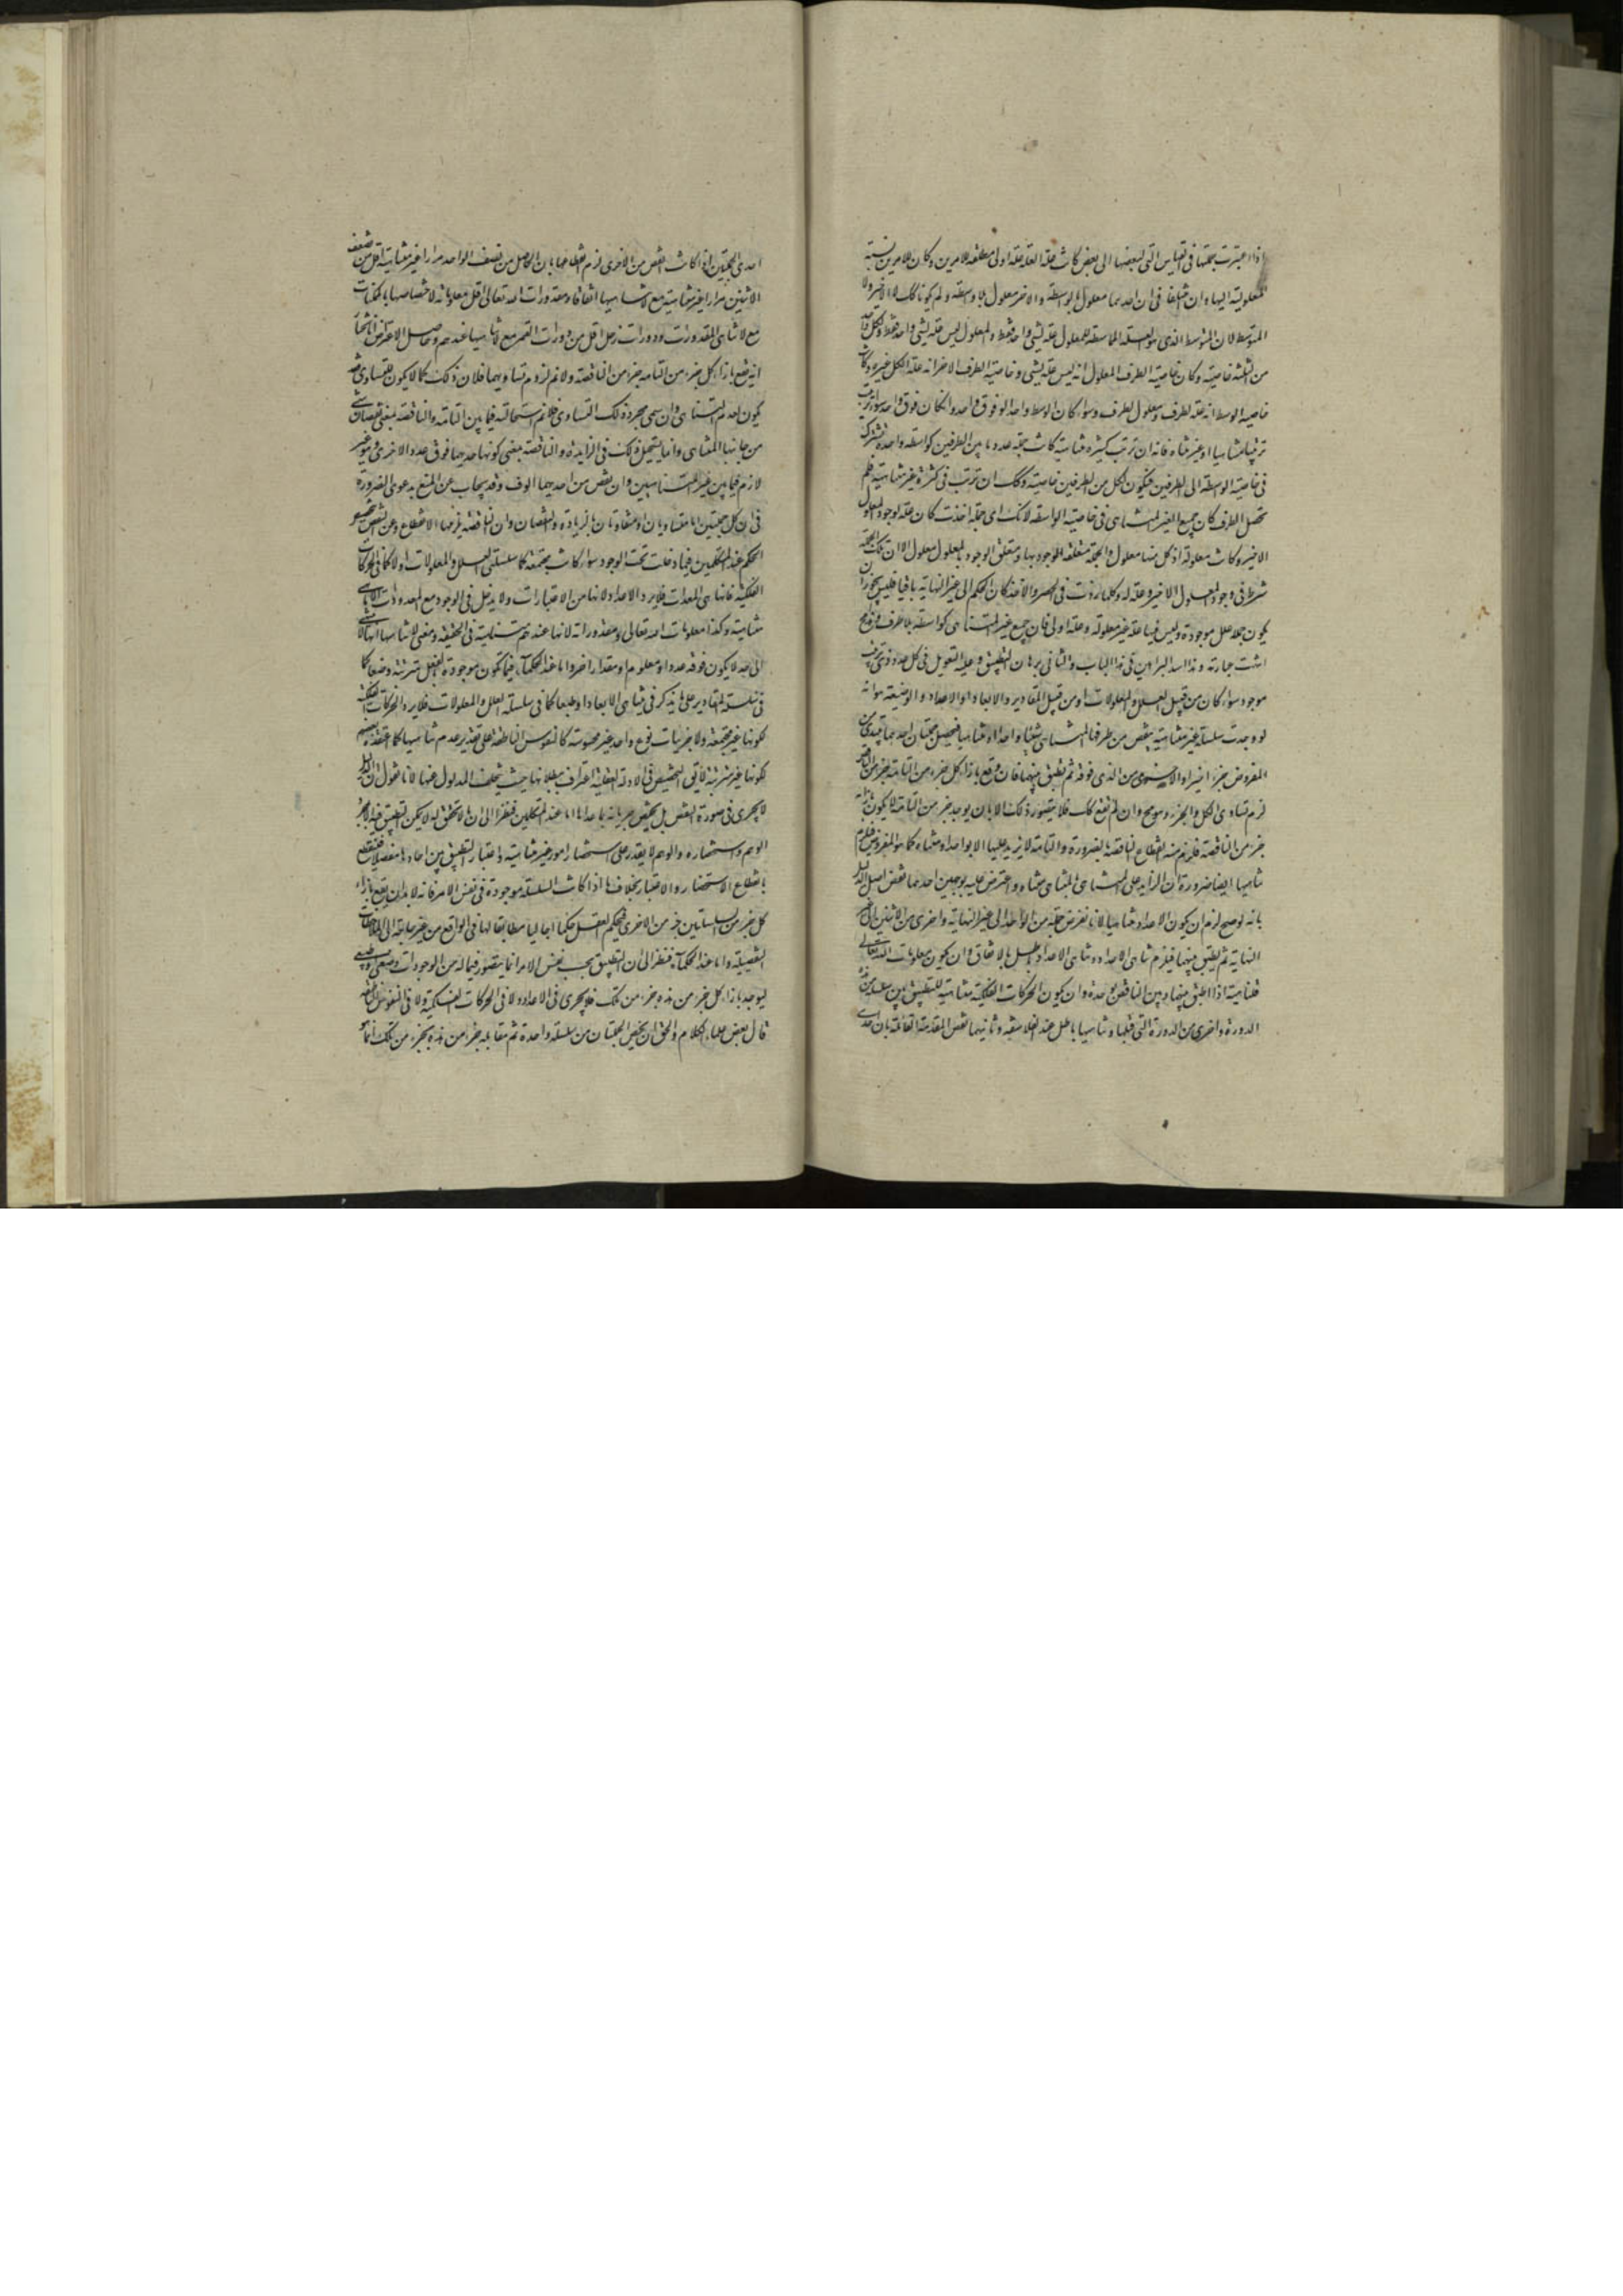 اذا اعتبرت جملتها فى القياس الذى لبعضها الى بعض كانت علة العلة علة اولى مطلقة للامرين وكان للامرين نسبة
المعلولية اليها وان اختلفا فى ان احدهما معلول بالواسطة والاخر معلول بلا واسطة ولم يكونا كك لا الاخير ولا
المتوسط لان المتوسط الذى هو العلة المماسة للمعلول علة لشى واحد فقط والمعلول ليس علة لشى واحد فقط ولكل واحد
من الثلثة خاصية وكان خاصية الطرف المعلول انه ليس علة لشى وخاصية الطرف الاخر انه علة الكل غيره وكانت
خاصية الوسط انه علة لطرف ومعلول لطرف وسواء كان الوسط واحدا او فوق واحد وان كان فوق واحد سواء ترتب
ترتيبا متناهيا او غير متناه فانه ان ترتب كثيرة متناهية كانت جملة عدد ما بين الطرفين كواسطة واحدة تشترك
فى خاصية الواسطة الى الطرفين فيكون لكل من الطرفين خاصية وكك ان ترتب فى كثرة غير متناهية فلم
يحصل الطرف كان جميع الغير المتناهى فى خاصية الواسطة لانك اى جملة اخذت كان علة لوجود المعلول
الاخير وكانت معلولة اذ كل منها معلول والجملة متعلقة الوجود بها ومتعلق الوجود بالمعلول معلول الا ان تلك الجملة
شرط فى وجود المعلول الاخير وعلة له وكلما زدت فى الحصر والاخذ كان الحكم الى غير النهاية باقيا فليس يجوز ان
يكون جملة علل موجودة وليس فيها علة غير معلولة وعلة اولى فان جميع غير المتناهى كواسطة بلا طرف وهو مح
انتهت عبارته وهذا اسد البراهين فى هذا الباب والثانى برهان التطبيق وعليه التعويل فى كل عدد ذى ترتيب
موجود سواء كان من قبيل العلل والمعلولات او من قبيل المقادير والابعاد او الاعداد والوضعية هو انه
لو وجدت سلسلة غير متناهية ينقص من طرفها المتناهى شيئا واحدا او متناهيا فيحصل جملتان احدهما يبتدى من
المفروض جزءا اخيرا والاخرى من الذى فوقه ثم نطبق بينهما فان وقع بازاء كل جزء من التامة جزء من الناقصة
لزم تساوى الكل والجزء وهو مح وان لم يقع كك فلا يتصور ذلك الا بان يوجد جزء من التامة لا يكون بازائه
جزء من الناقصة فلزم منه انقطاع الناقصة بالضرورة والتامة لا تزيد عليها الا بواحد او متناه كما هو المفروض فلزم
تناهيها ايضا ضرورة ان الزايد على المتناهى بالمتناهى متناه واعترض عليه بوجهين احدهما نقض اصل الدليل
بانه لو صح لزم ان يكون الاعداد متناهية لانا نفرض جملة من الواحد الى غير النهاية واخرى من الاثنين الى غير
النهاية ثم نطبق بينهما فيلزم تناهى الاعداد وتناهى الاعداد باطل بالاتفاق وان يكون معلومات الله تعالى
متناهية اذا اطبق بينها وبين الناقص بواحدة وان يكون الحركات الفلكية متناهية للتطبيق بين سلسلة من هذه
الدورة واخرى من الدورة التى قبلها وتناهيها باطل عند الفلاسفة وثانيهما نقض المقدمة القائلة بان احدى
احدى الجملتين اذا كانت انقص من الاخرى لزم انقطاعها بان الحاصل من تضعيف الواحد مرارا غير متناهية اقل من تضعيف
الاثنين مرارا غير متناهية مع لا تناهيها اتفاقا ومقدورات الله تعالى اقل من معلوماته لاختصاصها بالممكنات
مع لا تناهى المقدورات ودورات زحل اقل من دورات القمر مع لا تناهيها عندهم وحاصل الاعتراض انا نختار
انه يقع بازاء كل جزء من التامة جزء من الناقصة ولا نم لزوم تساويهما فلان ذلك كما يكون للتساوى فقد
يكون لعدم التناهى وان سمى مجرد ذلك التساوى فلا نم استحالته فيما بين التامة والناقصة بمعنى نقصان شى
من جانبها المتناهى وانما يستحيل ذلك فى الزايدة والناقصة بمعنى كونها احديهما فوق عدد الاخرى وهو غير
لازم فيما بين غير المتناهيين وان نقص من احديهما الوف وقد يجاب عن المنع بدعوى الضرورة
فى ان كل جملتين اما متساويان او متفاوتان بالزيادة والنقصان وان الناقصة يلزمها الانقطاع وعن النقض بتخصيص
الحكم عند المتكلمين فيما دخلت تحت الوجود سواء كانت مجتمعة كما سلسلتى العلل والمعلولات او لا كما فى الحركات
الفلكية فانها هى المعدات فلا يرد الاعداد لانها من الاعتبارات ولا يدخل فى الوجود مع المعدودات الا ما هى
متناهية وكذا معلومات الله تعالى ومقدوراته لانها عندهم متناهية فى الحقيقة ومعنى لا تناهيها انها لا تنتهى
الى حد لا يكون فوقه عدد او معلوم او مقدار اخر واما عند الحكماء فيما تكون موجودة بالفعل مترتبة وضعا كما
فى سلسلة المقادير على ما يذكر فى تناهى الابعاد او طبعا كما فى سلسلة العلل والمعلولات فلا يرد الحركات الفلكية
لكونها غير مجتمعة ولا جزئيات نوع واحد غير محصورة كالنفوس الناطقة على تقدير عدم تناهيها كما اعتقده بعضهم
لكونها غير مترتبة لا يق التخصيص فى الادلة العقلية اعتراف ببطلانها حيث يتخلف المدلول عنها لانا نقول ان الدليل
لا يجرى فى صورة النقض بل يختص جريانه بما عداها اما عند المتكلمين فنظرا الى ان ما لا تحقق له لا يمكن التطبيق فيه الا بمجرد
الوهم واستحضاره والوهم لا يقدر على استحضار امور غير متناهية واعتبار التطبيق بين احادها مفصلا فينقطع
بانقطاع الاستحضار والاعتبار بخلاف ما اذا كانت السلسلة موجودة فى نفس الامر فانه لا بد ان يقع بازاء
كل جزء من السلسلتين جزء من الاخرى فيحكم العقل حكما اجماليا مطابقا لما فى الواقع من غير حاجة الى الملاحظات
التفصيلية واما عند الحكماء فنظرا الى ان التطبيق بحسب نفس الامر انما يتصور فيما له من الموجودات وضعى وطبعى
ليوجد بازاء كل جزء من هذه جزء من تلك فلا يجرى فى الاعداد ولا فى الحركات الفلكية ولا فى النفوس الناطقة
قال بعض علماء الكلام والحق ان تحصيل الجملتان من سلسلة واحدة ثم مقابلة جزء من هذه بجزء من تلك انما